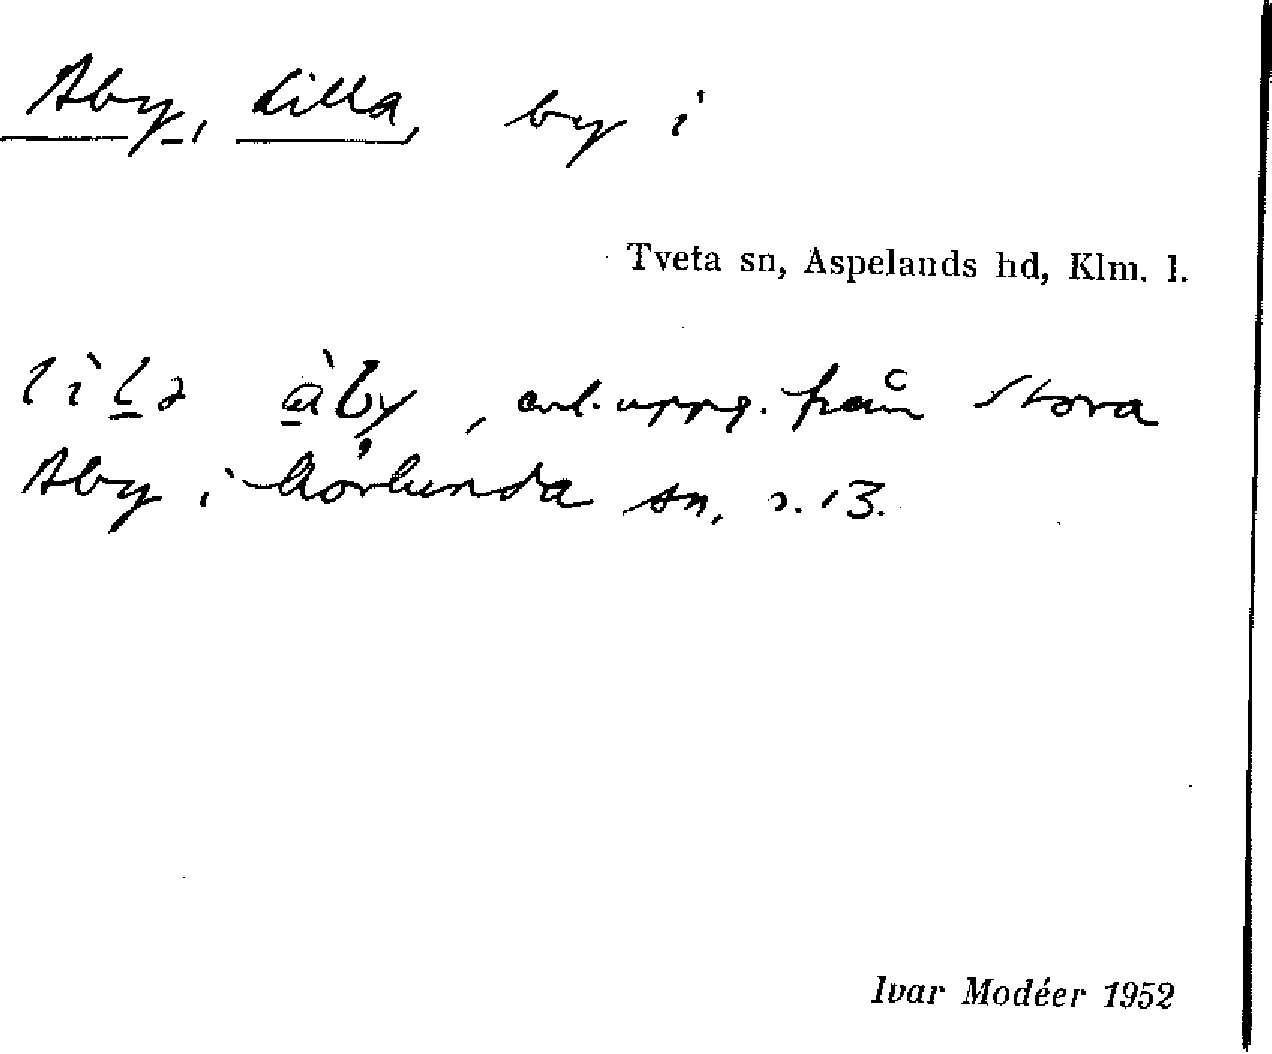 Åby, Lilla, by i
Tveta sn, Aspelands hd, Klm. l.
enl. uppg. från Stora
Åby i Mörlunda sn, s. 13.
Ivar Modéer 1952